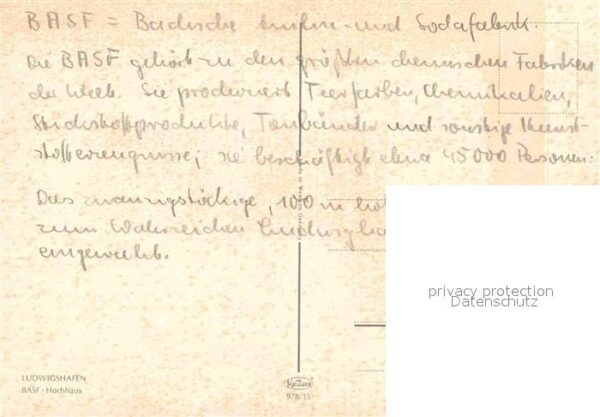 BASF = Badische Anilin- und Sodafabrik.
Die BASF gehört zu den größten chemischen Fabriken
der Welt. Sie produziert Teerfarben, Chemikalien,
Stickstoffprodukte, Tonbänder und sonstige Kunst-
stofferzeugnisse; sie beschäftigt etwa 45000 Personen.
Das zwanzigstöckige, 100 m
zum Wahrzeichen
eingeweiht.
privacy protection
Datenschutz
LUDWIGSHAFEN
BASF - Hochhaus
Krüger
978/15